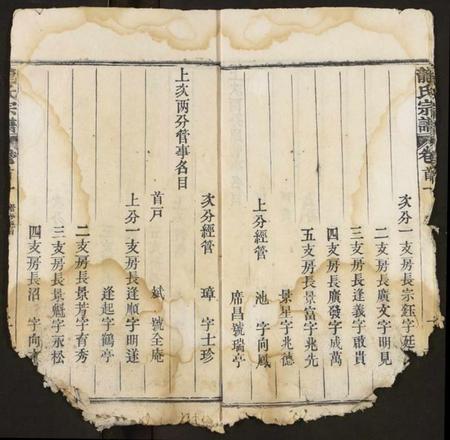 氏宗譜 卷首一
次分一支房長宗鈺字廷
二支房長廣文字明見
三支房長逢義字敢貴
四支房長廣發字成萬
五支房長景富字兆先
景星字兆德
上分經管 池 字向鳳
席昌號瑞亭
次分經管 璋 字士珍
上次两分管事名目
首戸 斌 號全庵
上分一支房長逢順字明遂
逢起字鶴亭
二支房長景芳字育秀
三支房長景魁字永松
四支房長沼 字向
氏宗譜 卷首一